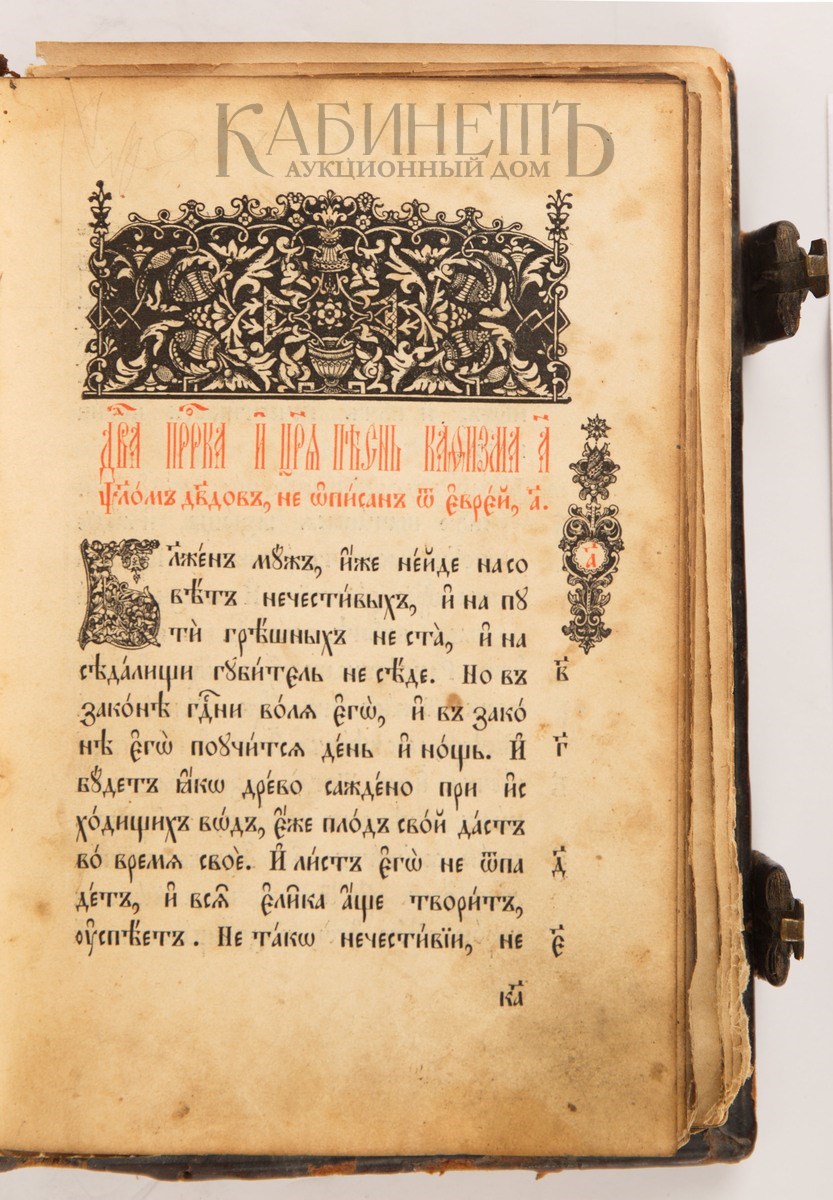 КАБИНЕТЪ
АУКЦИОННЫЙ ДОМ
Дв҃а прⷪ҇рка и҆ цр҃ѧ пѣснь каѳизма а҃
Ѱл҃омъ дв҃довъ, не ѡ҆пи́санъ ѿ є҆вре́й, а҃.
Бл҃же́нъ мꙋ́жъ, и҆́же не́йде на со
а҃
вѣ́тъ нечести́выхъ, и҆ на пꙋ
тѝ грѣ́шныхъ не ста̀, и҆ на
сѣда́лищи гꙋби́тєль не сѣ́де. Но въ
в҃
зако́нѣ гдⷭ҇ни во́лѧ є҆гѡ̀, и҆ въ зако́
нѣ є҆гѡ̀ поꙋчи́тсѧ де́нь и҆ но́щь. И҆
г҃
бꙋ́детъ ꙗ҆́кѡ дре́во сажде́но при и҆с
хо́дищихъ во́дъ, є҆́же пло́дъ сво́й да́стъ
во́ времѧ своѐ. И҆ ли́стъ є҆гѡ̀ не ѿпа
д҃
де́тъ, и҆ всѧ̑ є҆ли̑ка а҆́ще твори́тъ,
оу҆спѣ́етъ. Не та́кѡ нечести́вїи, не
є҃
ка҃